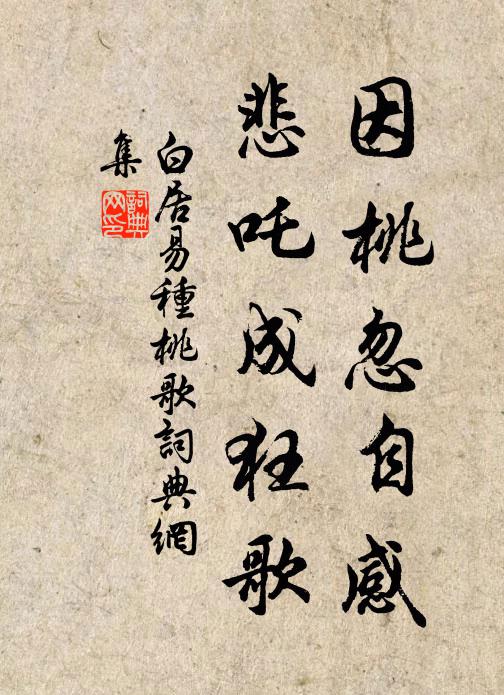 因桃忽自感
悲吒成狂歌
白居易種桃歌詞典網
集
詞典網印